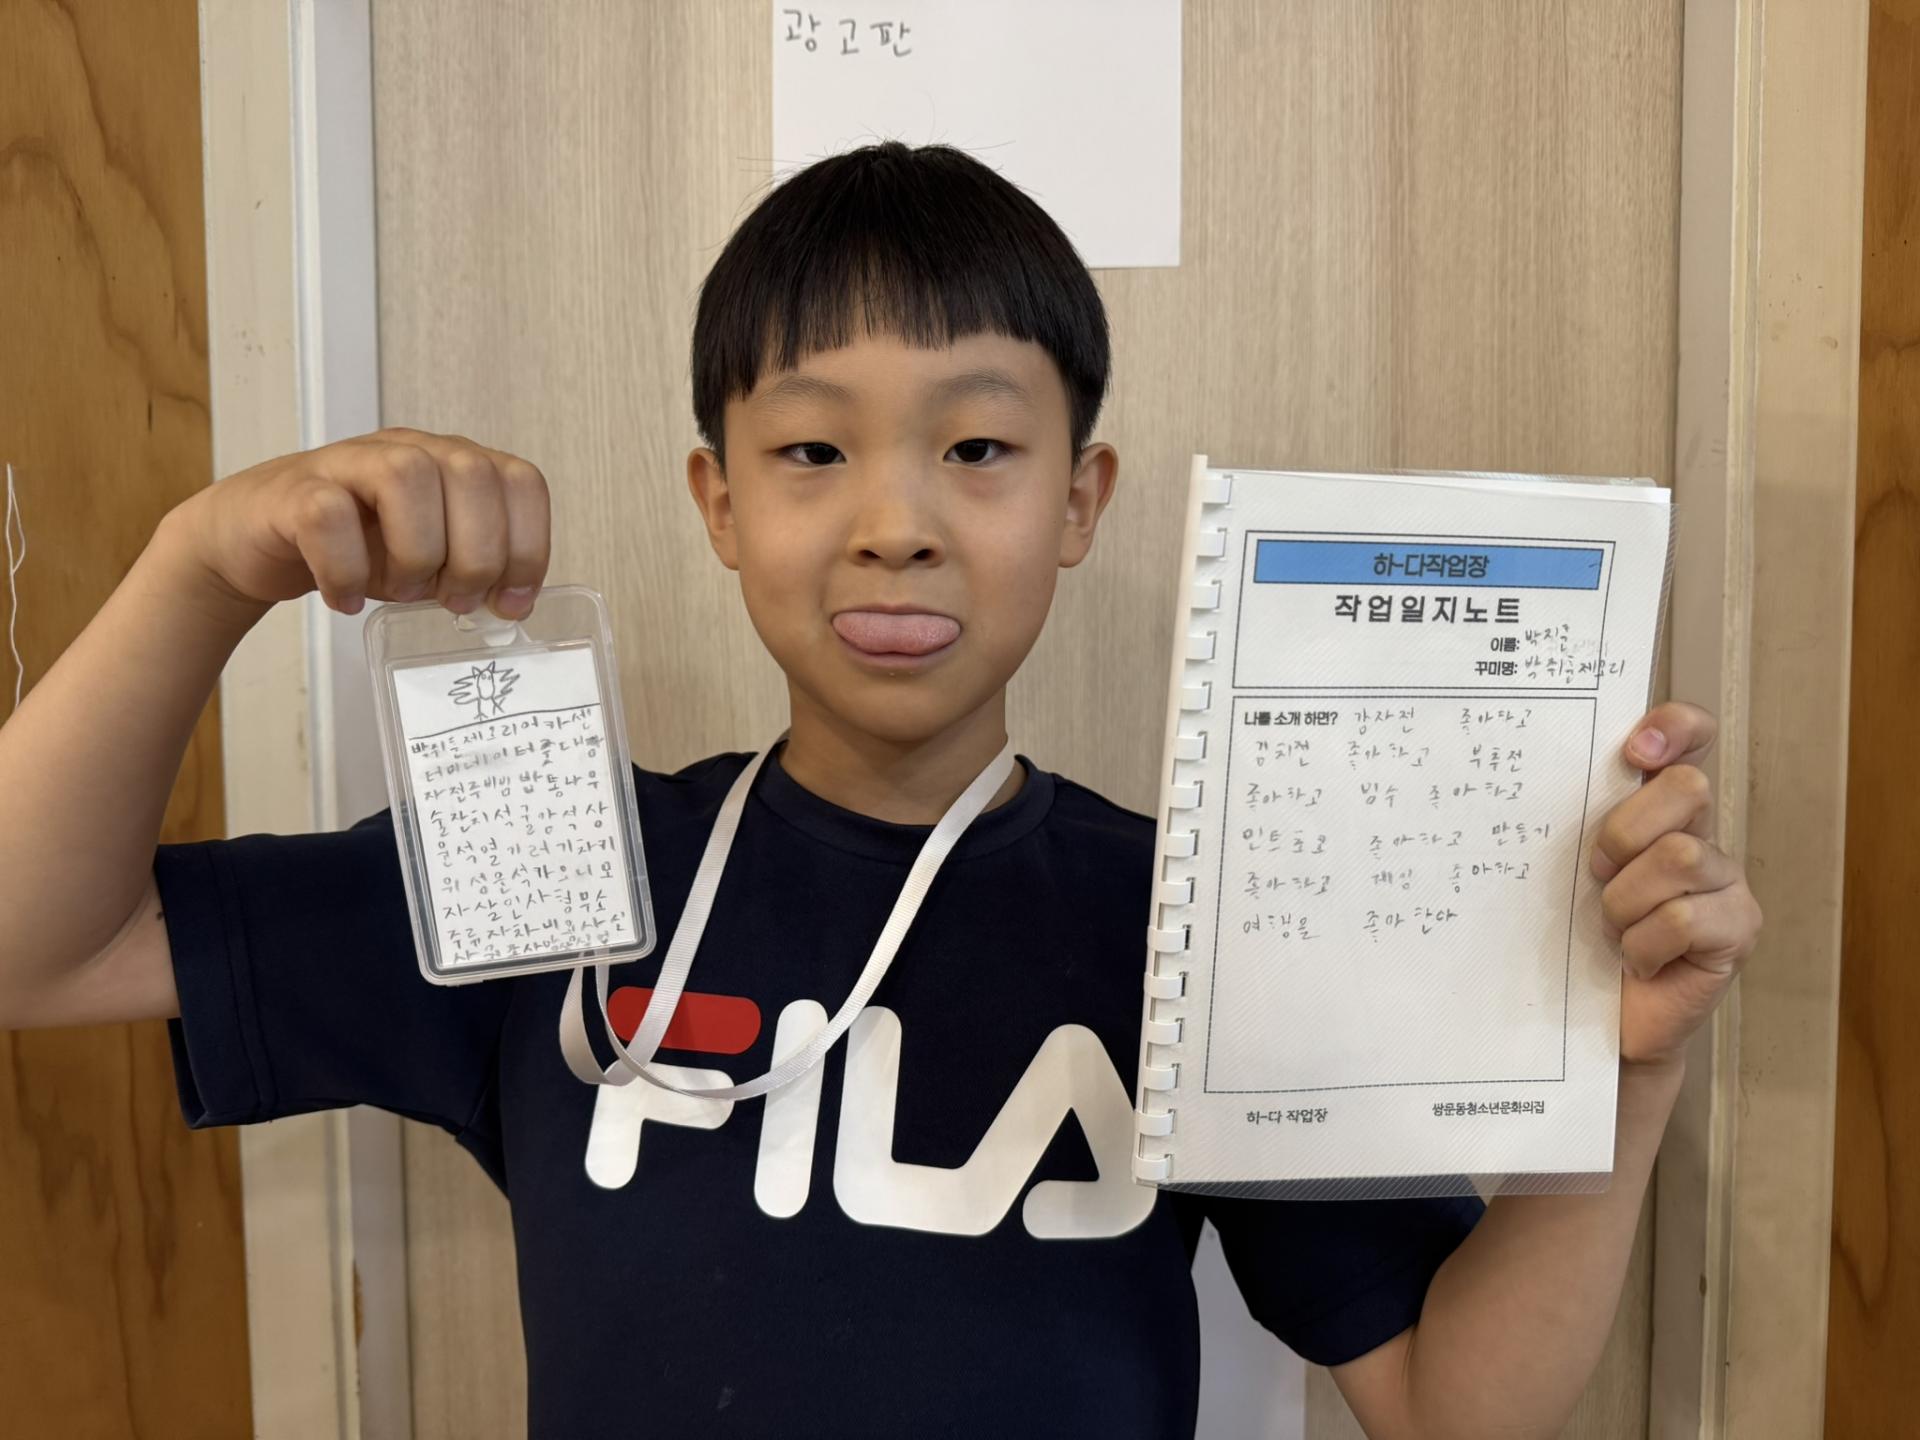 광고판
박쥐훈제오리어카센
터미네이터줓대왕
자전주비빔밥통나무
술잔치석굴암석상
윤석열기러기차키
위생은석카오니모
자살인사형무소
주류자차비용사실
하-다작업장
작업일지노트
이름: 박지훈
꾸미명: 박쥐훈제오리
나를 소개 하면? 감자전 좋아하고
김치전 좋아하고 부추전
좋아하고 빙수 좋아하고
민트초코 좋아하고 만들기
좋아하고 게임 좋아하고
여행을 좋아한다
하-다 작업장
쌍문동청소년문화의집
FILA